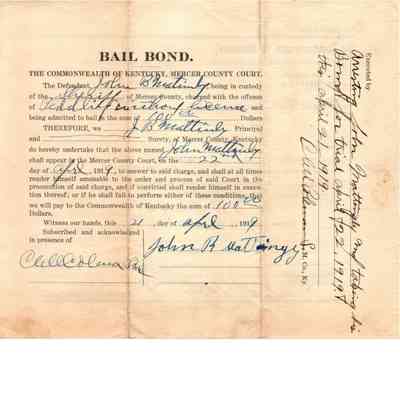 BAIL BOND.
THE COMMONWEALTH OF KENTUCKY, MERCER COUNTY COURT.
The Defendant, John B Mattingly being in custody
of the Sheriff of Mercer County, charged with the offense
of Peddling without license and
being admitted to bail in the sum of 100 00 Dollars
THEREFORE, we J B Mattingly Principal
and Surety, of Mercer County, Kentucky,
do hereby undertake that the above named John Mattingly
shall appear in the Mercer County Court, on the 22
day of April 1919, to answer to said charge, and shall at all times
render himself amenable to the order and process of said Court in the
prosecution of said charge, and if convicted shall render himself in execu-
tion thereof; or if he shall fail to perform either of these conditions, that
we will pay to the Commonwealth of Kentucky the sum of 100 00
Dollars.
Witness our hands, this 21 day of April 1919
Subscribed and acknowledged
in presence of
John B Mattingly
Executed by
arresting John Mattingly and taking his
Bond for trial april 22. 1919
this april 21 1919
S. M. Co. Ky.